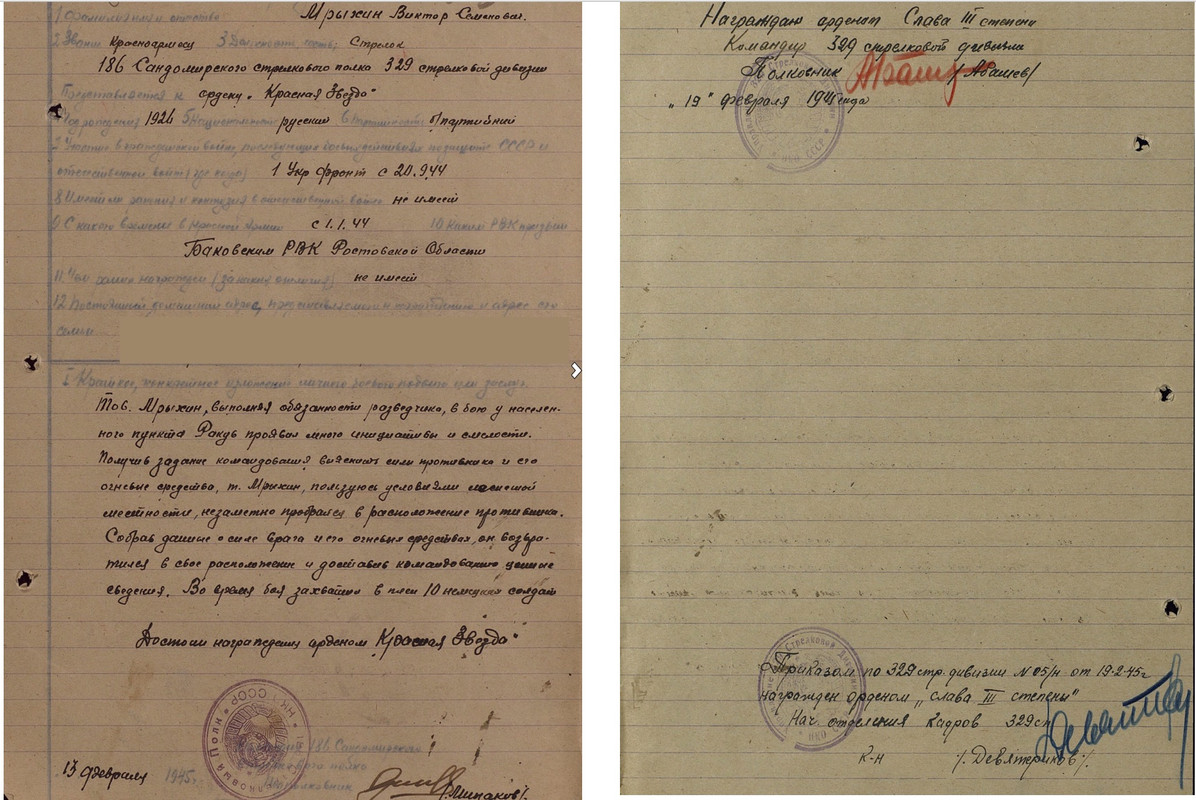 1 Фамилия имя и отчество Мрыхин Виктор Семенович.
2 Звание Красноармеец 3 Должность часть: Стрелок
186 Сандомирского стрелкового полка 329 стрелковой дивизии
Представляется к ордену „Красная Звезда"
4 год рождения 1926 5 Национальность русский 6 Партийность б/партийный
7 Участие в гражданской войне, последующих боевых действиях по защите СССР и
отечественной войне (где когда) 1 Укр фронт с 20.9.44
8 Имеет ли ранения и контузии в отечественной войне не имеет
9 С какого времени в Красной Армии с 1.1.44 10 Каким РВК призван
Баковским РВК Ростовской Области
11 Чем ранее награжден (за какие отличия) не имеет
12 Постоянный домашний адрес представляемого к награждению и адрес его
семьи
I Краткое, конкретное изложение личного боевого подвига или заслуг.
Тов. Мрыхин, выполняя обязанности разведчика, в бою у населен-
ного пункта Ракдь проявил много инициативы и смелости.
Получив задание командования выяснить силы противника и его
огневые средства, т. Мрыхин, пользуясь условиями местности, незаметно пробрался в расположение противника.
Собрав данные о силе врага и его огневых средствах, он возвра-
тился в свое расположение и доставил командованию ценные
сведения. Во время боя захватил в плен 10 немецких солдат
Достоин награждения орденом Красная Звезда"
186 Сандомирского
стрелкового полка
подполковник
13 февраля 1945г.
Награждаю орденом Слава III степени
Командир 329 стрелковой дивизии
Полковник /Абашев/
„19" февраля 1945 года
Приказом по 329 стр. дивизии N 05/н от 19-2-45г
награжден орденом „Слава III степени"
Нач. отделения Кадров 329 сд
К-н /Девятериков/.